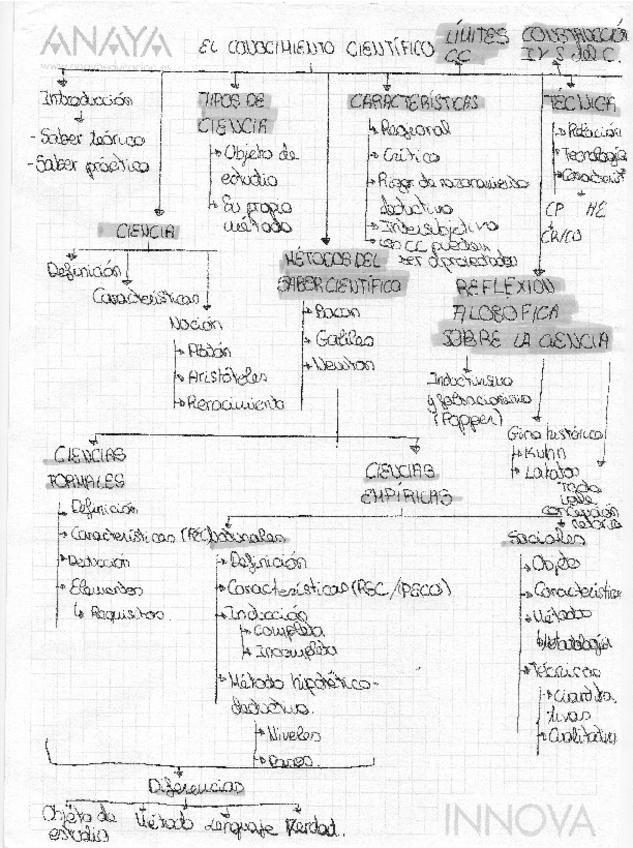 ANAYA
www.anayaeducacion.es
EL CONOCIMIENTO CIENTÍFICO
LÍMITES
CC
CONSTRUCCIÓN
Introducción
- Saber teórico
- Saber práctico
TIPOS DE
CIENCIA
Objeto de
estudio
Su propio
método
CARACTERÍSTICAS
Racional
Crítico
Rigor de razonamiento
deductivo
Intersubjetivo
CC pueden
ser
TÉCNICA
Relación
Tecnología
Caracterist
CP
CIENCIA
Definición
Características
Noción
Platón
Aristóteles
Renacimiento
MÉTODOS DEL
SABER CIENTÍFICO
Bacon
Galileo
Newton
REFLEXIÓN
FILOSÓFICA
SOBRE LA CIENCIA
Inductivismo
y falsacionismo
(Popper)
Giro histórico
Kuhn
Lakatos
concepción
CIENCIAS
FORMALES
Definición
Características
Deducción
Elementos
Requisitos.
CIENCIAS
EMPÍRICAS
Naturales
Definición
Características
Inducción
Completa
Incompleta
Método hipotético-
deductivo.
Niveles
Pasos.
Sociales
Objeto
Características
Método
Metodología
Técnicas
Cuantita
tivas
Cualitativas
Diferencias
Objeto de
estudio
Método
Lenguaje
Verdad.
INNOVA